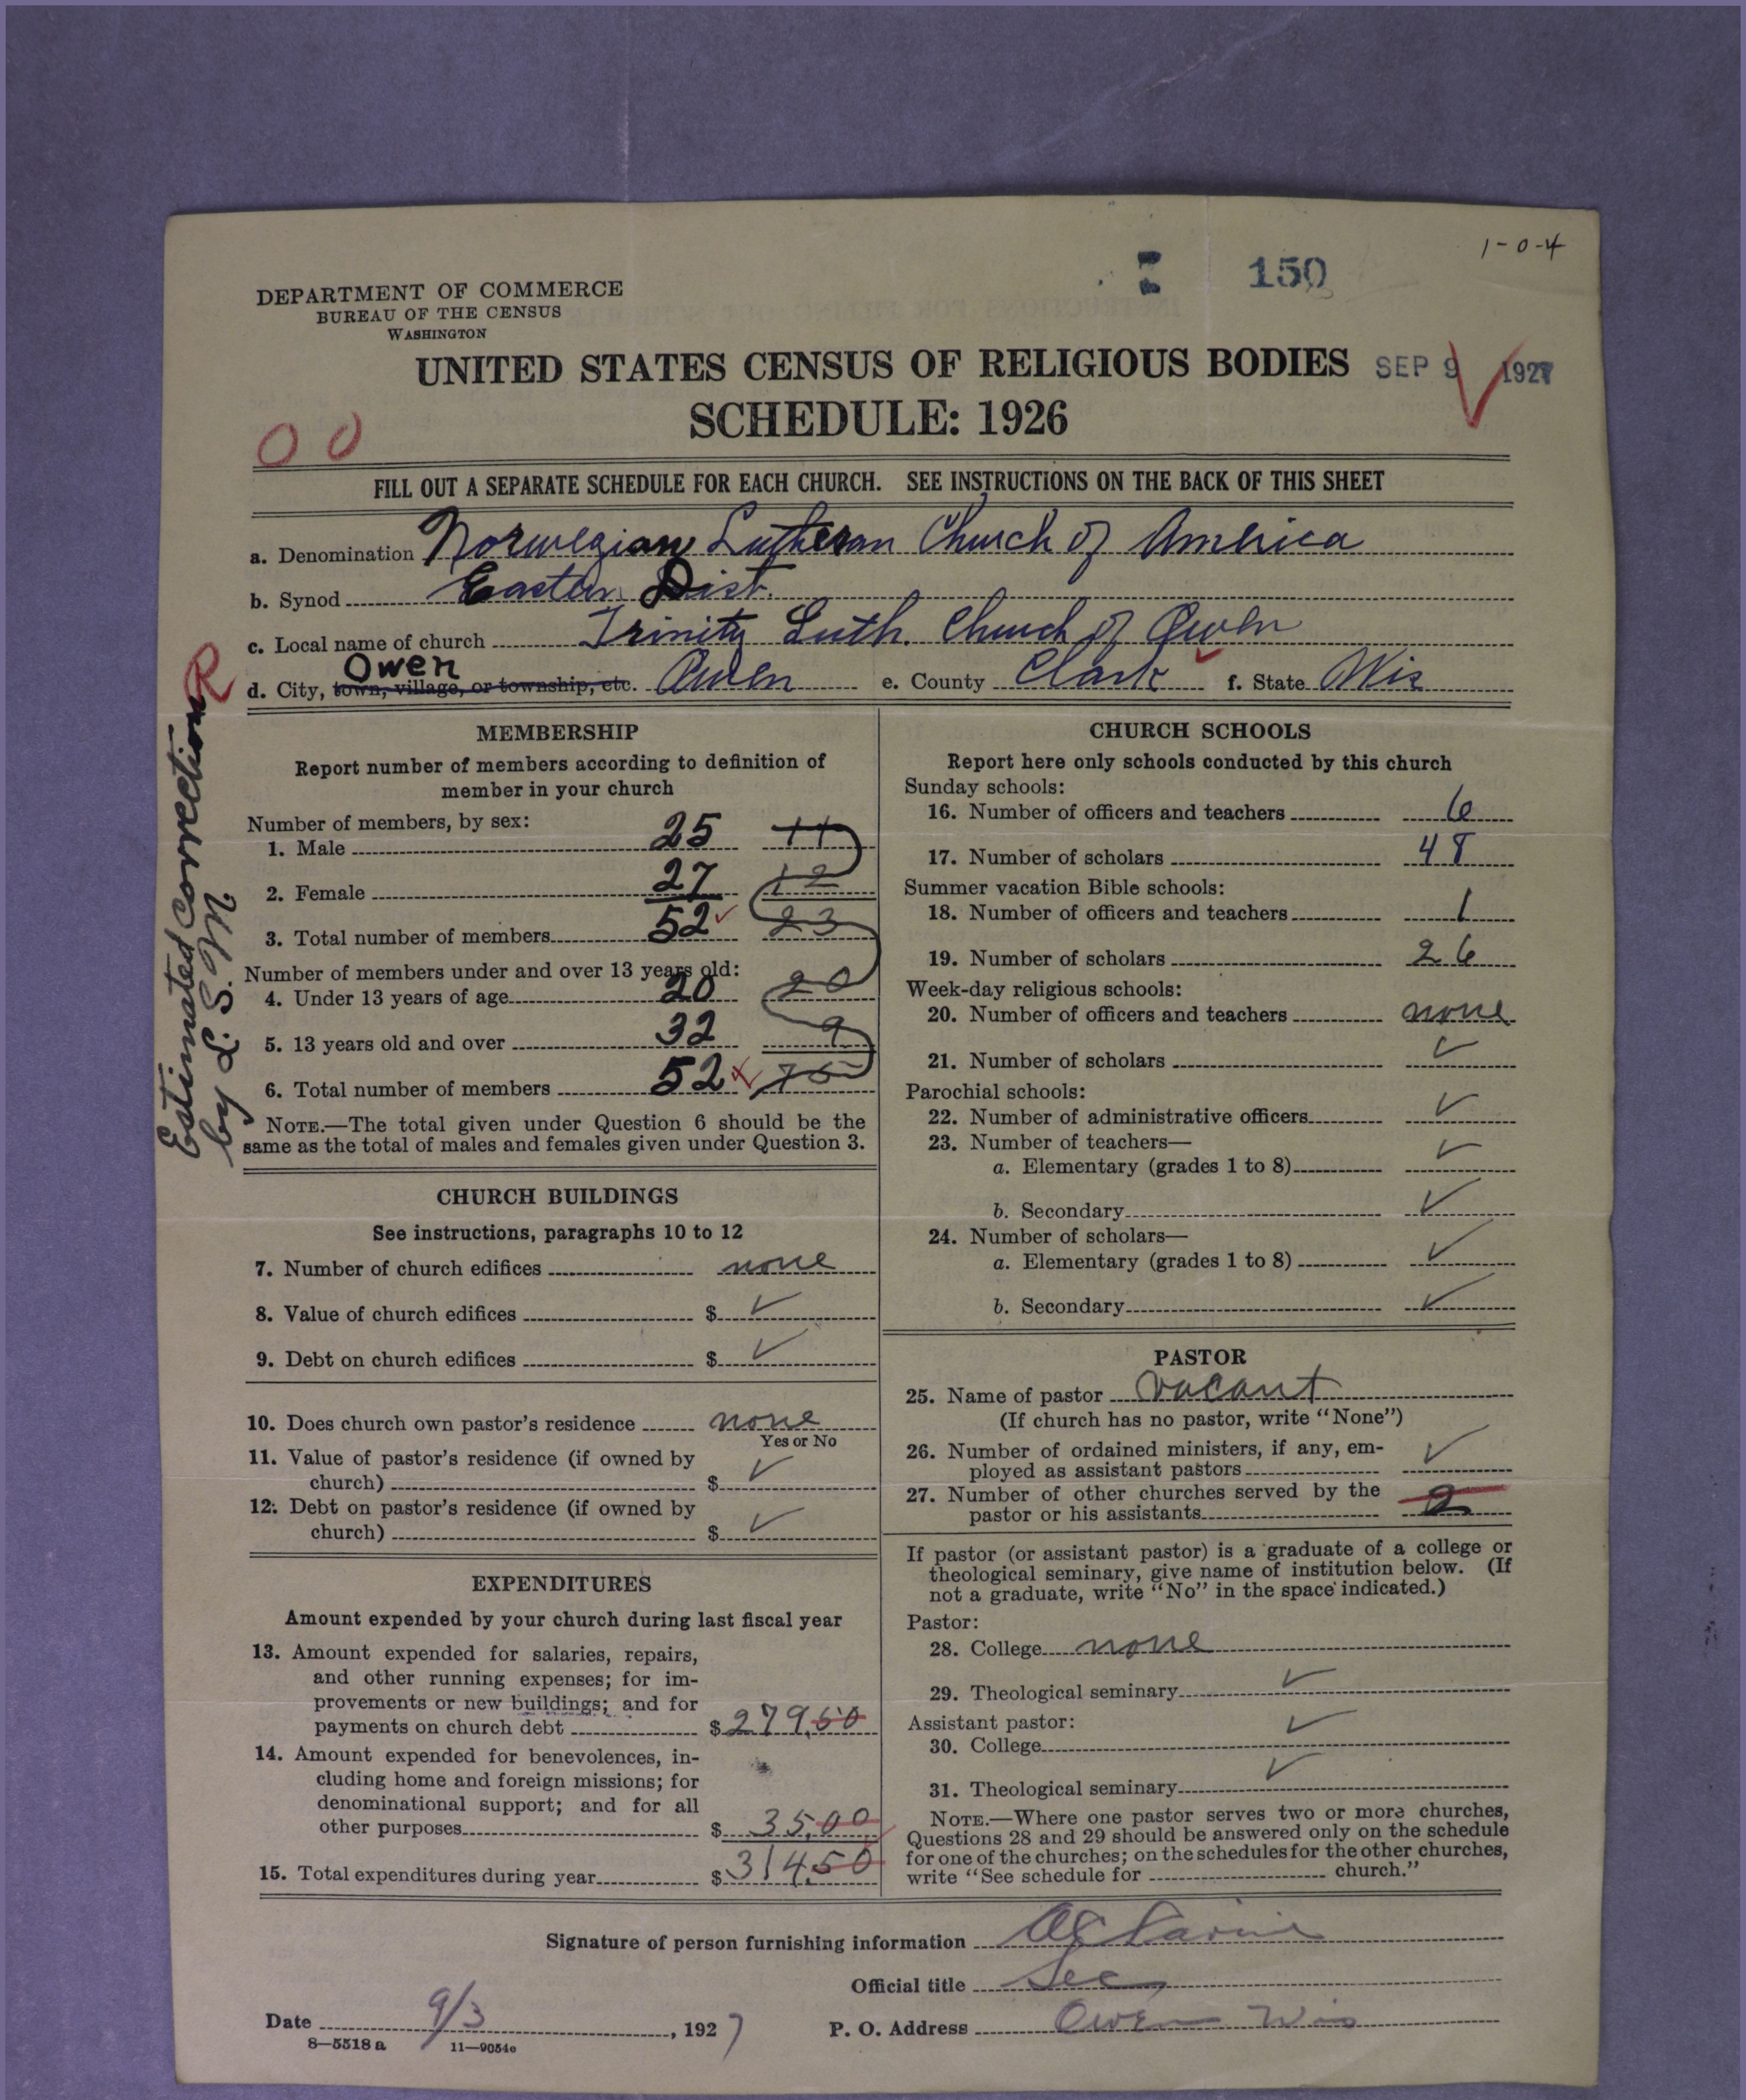 1-0-4
150
DEPARTMENT OF COMMERCE
BUREAU OF THE CENSUS
WASHINGTON
UNITED STATES CENSUS OF RELIGIOUS BODIES SEP 9 1927
SCHEDULE: 1926
00
FILL OUT A SEPARATE SCHEDULE FOR EACH CHURCH. SEE INSTRUCTIONS ON THE BACK OF THIS SHEET
a. Denomination Norwegian Lutheran Church of America
b. Synod Eastern Dist.
c. Local name of church Trinity Luth. Church of Owen
Owen
d. City, town, village, or township, etc. Owen e. County Clark f. State Wis
R
Estimated correction
by L. S. M.
MEMBERSHIP
Report number of members according to definition of
member in your church
Number of members, by sex:
1. Male 25 11
2. Female 27 12
3. Total number of members 52 23
Number of members under and over 13 years old:
4. Under 13 years of age 20 20
5. 13 years old and over 32 9
6. Total number of members 52
NOTE.—The total given under Question 6 should be the
same as the total of males and females given under Question 3.
CHURCH BUILDINGS
See instructions, paragraphs 10 to 12
7. Number of church edifices none
8. Value of church edifices $ ✓
9. Debt on church edifices $ ✓
10. Does church own pastor's residence none
Yes or No
11. Value of pastor's residence (if owned by
church) $ ✓
12. Debt on pastor's residence (if owned by
church) $ ✓
EXPENDITURES
Amount expended by your church during last fiscal year
13. Amount expended for salaries, repairs,
and other running expenses; for im-
provements or new buildings; and for
payments on church debt $ 279.50
14. Amount expended for benevolences, in-
cluding home and foreign missions; for
denominational support; and for all
other purposes $ 35.00
15. Total expenditures during year $ 314.50
CHURCH SCHOOLS
Report here only schools conducted by this church
Sunday schools:
16. Number of officers and teachers 6
17. Number of scholars 48
Summer vacation Bible schools:
18. Number of officers and teachers 1
19. Number of scholars 26
Week-day religious schools:
20. Number of officers and teachers none
21. Number of scholars ✓
Parochial schools:
22. Number of administrative officers ✓
23. Number of teachers—
a. Elementary (grades 1 to 8) ✓
b. Secondary ✓
24. Number of scholars—
a. Elementary (grades 1 to 8) ✓
b. Secondary ✓
PASTOR
25. Name of pastor vacant
(If church has no pastor, write "None")
26. Number of ordained ministers, if any, em-
ployed as assistant pastors ✓
27. Number of other churches served by the
pastor or his assistants 2
If pastor (or assistant pastor) is a graduate of a college or
theological seminary, give name of institution below. (If
not a graduate, write "No" in the space indicated.)
Pastor:
28. College none
29. Theological seminary ✓
Assistant pastor:
30. College ✓
31. Theological seminary ✓
NOTE.—Where one pastor serves two or more churches,
Questions 28 and 29 should be answered only on the schedule
for one of the churches; on the schedules for the other churches,
write "See schedule for church."
Signature of person furnishing information
Official title Sec
Date 9/3, 1927 P. O. Address Owen Wis
8—5518 a 11—9054e